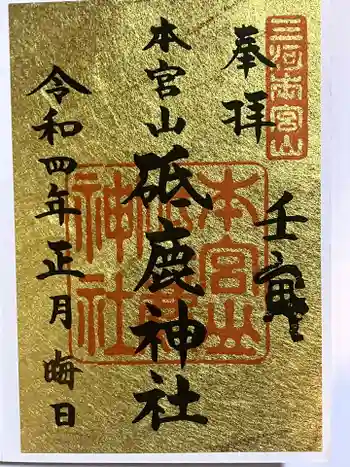 三河本宮山
奉拝
壬寅
本宮山
砥鹿神社
本宮山
砥鹿
神社
令和四年正月晦日